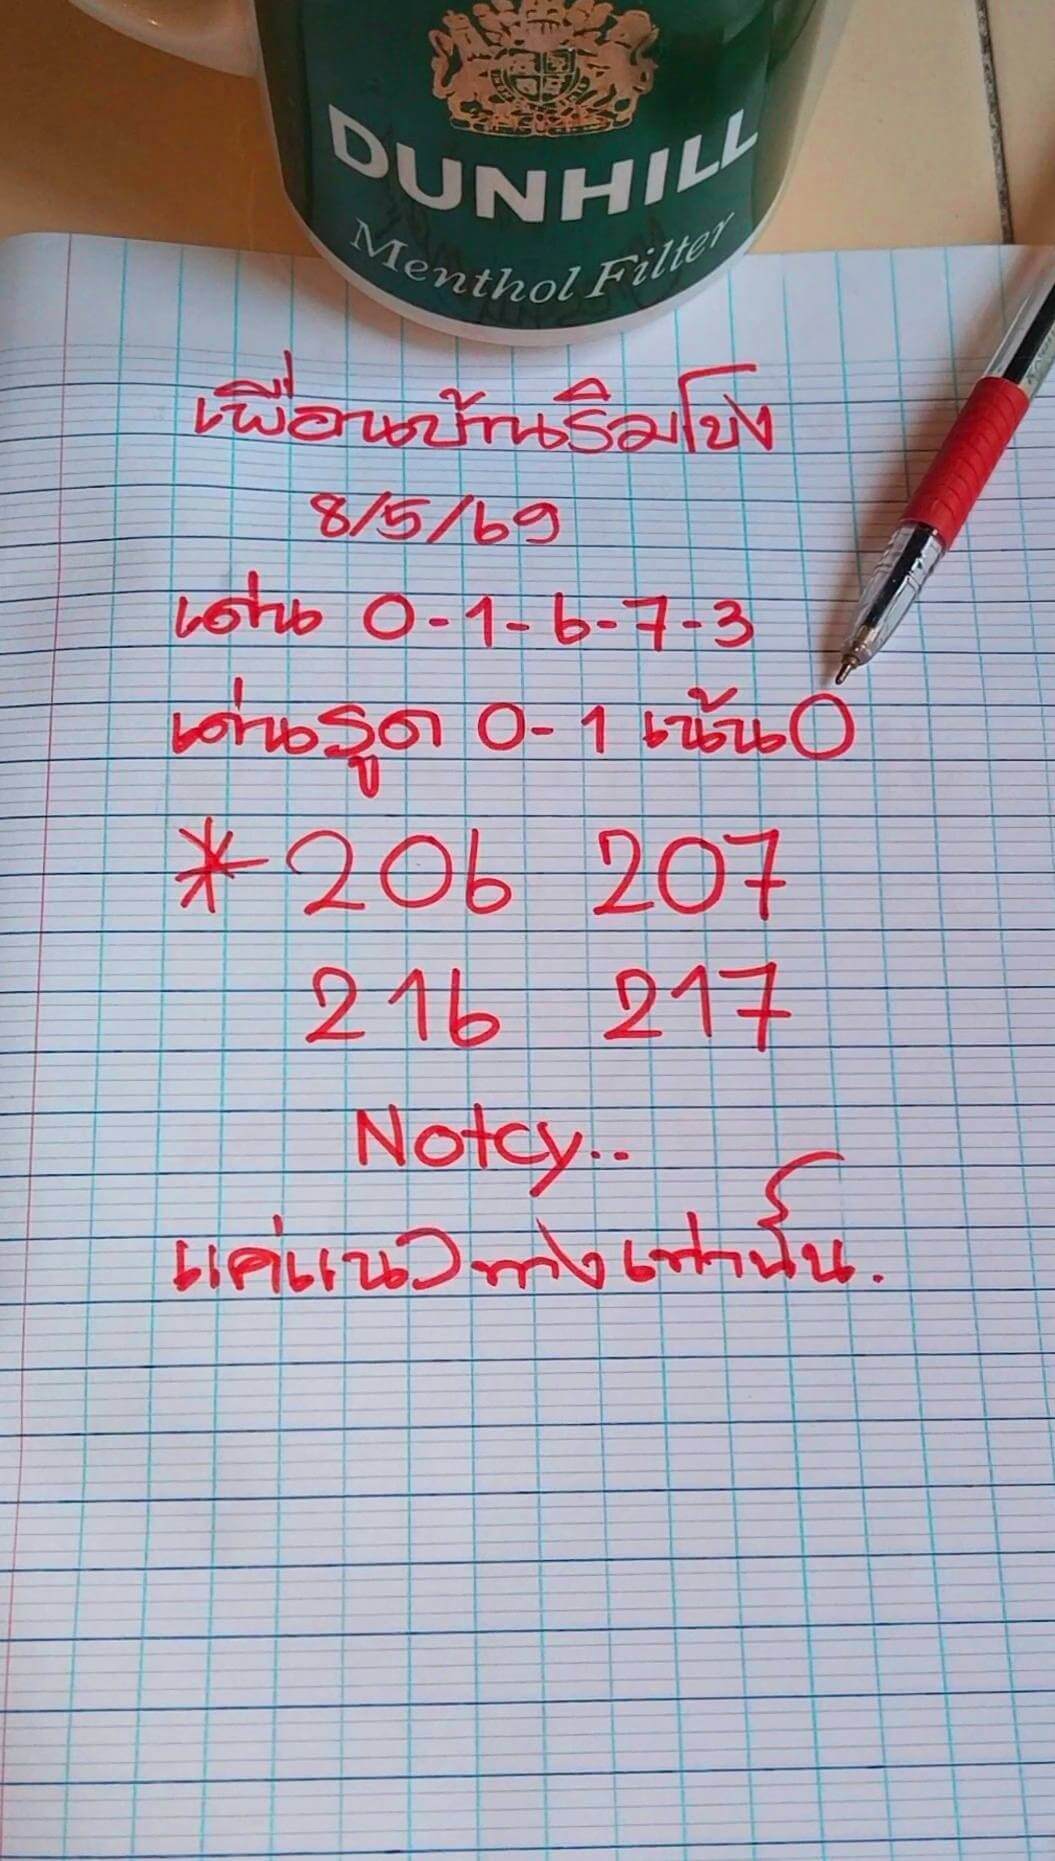 DUNHILL
Menthol Filter
เพื่อนบ้านริมโขง
8/5/69
เด่น 0-1-6-7-3
เด่นรูด 0-1 เน้น 0
* 206 207
216 217
Notcy..
แค่แนวทางเท่านั้น.